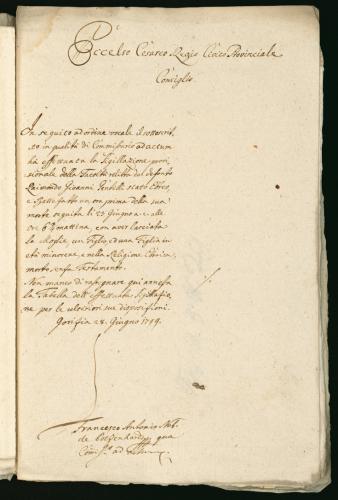 Eccelso Cesareo Regio Civico Provinciale
Consiglio
In seguito ad ordine vocale il sottoscrit,
to in qualità di Commissario ad actum
ha effettuata la Sigillazione provi,
sionale della Facoltà relitta del defonto
Raimondo Giovanni stato Ebreo,
e Battezzatto un ora prima della sua
morte seguita li 23 Giugno a alle
ore 6 mattina, con aver lasciata
la Moglie, un Figlio, ed una Figlia in
età minorene, e nella Religione Ebraica,
morto senza Testamento.
Non manco di rassegnare qui annessa
la Tabella dell' effettuata Sigillazio,
ne per le ulteriori sue disposizioni.
Gorizia 28. Giugno 1799.
Francesco Antonio Nob.
de qua
Comiss.o ad